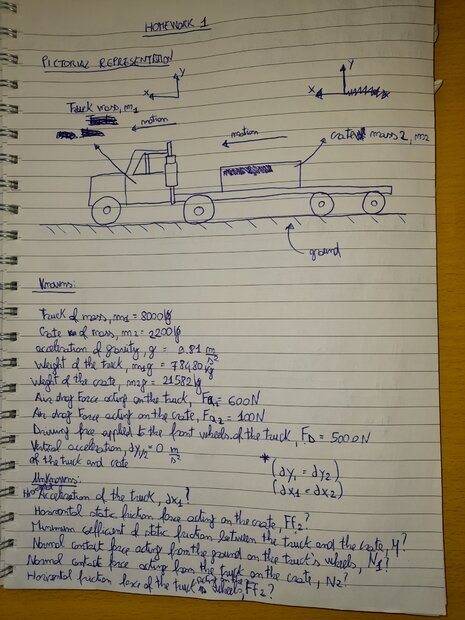 HOMEWORK 1
PICTORIAL REPRESENTATION
y
y
x
x
Truck mass, m1
motion
motion
crate mass 2, m2
ground
Knowns:
Truck of mass, m1 = 8000 kg
Crate of mass, m2 = 2200 kg
acceleration of gravity, g = 9.81 m/s²
Weight of the truck, m1g = 78480 kg
Weight of the crate, m2g = 21582 kg
Air drag Force acting on the truck, Fa1 = 600N
Air drag Force acting on the crate, Fa2 = 100N
Driving force applied to the front wheels of the truck, FD = 5000N
Vertical acceleration, ay1/2 = 0 m/s²
of the truck and crate
* (ay1 = ay2)
(ax1 = ax2)
Unknowns:
Acceleration of the truck, ax1?
Horizontal static friction force acting on the crate, Ff2?
Minimum coefficient of static friction between the truck and the crate, μ?
Normal contact force acting from the ground on the truck's wheels, N1?
Normal contact force acting from the truck on the crate, N2?
Horizontal friction force of the truck wheels, Ff2?